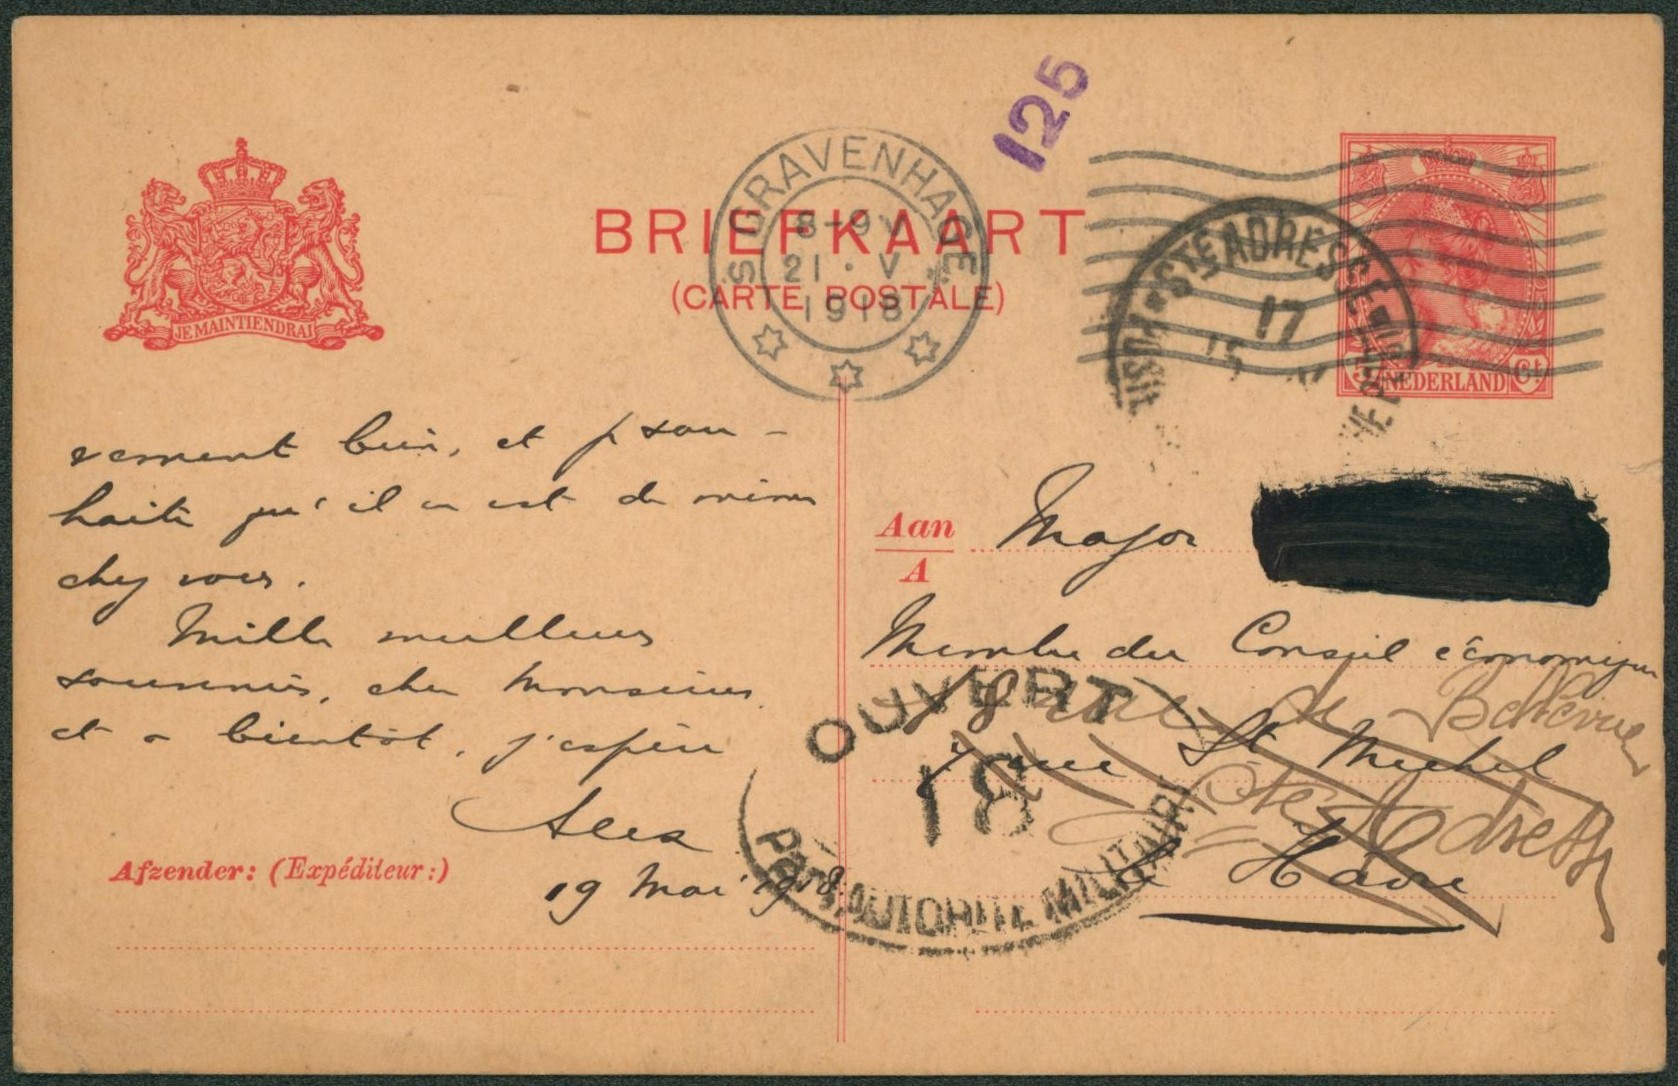 125
'S GRAVENHAGE
8-9V
21 · V
1918
BRIEFKAART
(CARTE POSTALE)
JE MAINTIENDRAI
STE ADRESSE
17
15
NEDERLAND
5 Ct
vement bien, et je sou-
haite qu'il en est de même
chez vous.
Mille meilleurs
souvenirs, cher Monsieur,
et à bientôt, j'espère
19 Mai 1918.
Afzender: (Expéditeur:)
Aan
A
Major
Membre du Conseil économique
rue St Michel
Le Havre
de Bellevue
Ste Adresse
OUVERT
18
PAR AUTORITE MILITAIRE